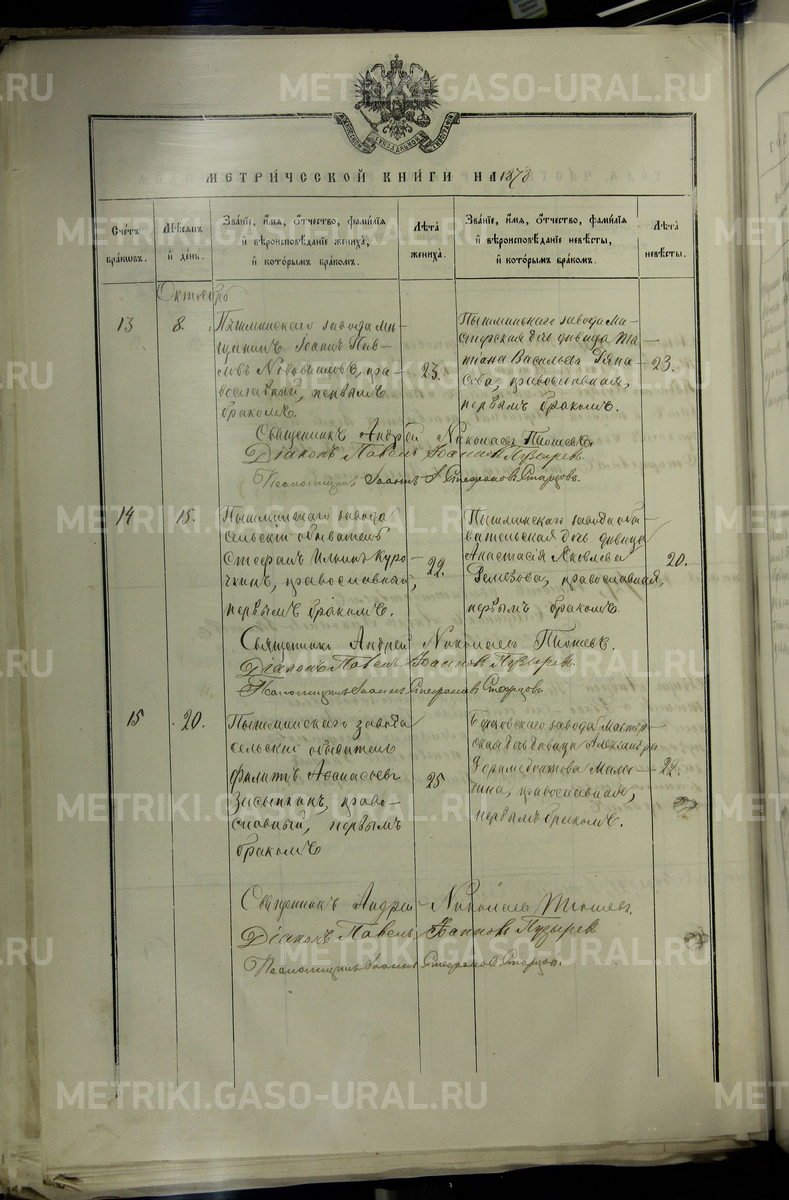 METRIKI.GASO-URAL.RU
МЕТРИ́ЧЕСКОЙ КНИ́ГИ НА 1878
Сче́тъ браковъ.
Мѣсяцъ и҆ де́нь.
Зва́нїе, и҆́мѧ, о҆́тчество, фами́лїѧ и҆ вѣроисповѣ́данїе жениха̀, и҆ кото́рымъ бра́комъ.
Лѣта̀ жениха̀.
Зва́нїе, и҆́мѧ, о҆́тчество, фами́лїѧ и҆ вѣроисповѣ́данїе невѣ́сты, и҆ кото́рымъ бра́комъ.
Лѣта̀ невѣ́сты.
Октябрь
13
8.
Пышминскаго завода мѣ-
щанинъ Іоаннъ
пра-
вославный, первымъ
бракомъ.
23.
Пышминскаго завода ма-
стерская дочь дѣвица Та-
тіана Васильева
православная,
первымъ бракомъ.
23.
Священникъ Андрей Николаевъ
Діаконъ Павелъ Іоанновъ Пузыревъ
Псаломщикъ Іоаннъ Стефановъ Старцовъ.
14
15.
Пышминскаго завода
сельскій обыватель
Стефанъ Ильинъ Куро-
чкинъ, православный,
первымъ бракомъ.
22.
Пышминскаго завода обы-
вательская дочь дѣвица
Анастасія Яковлева
Ремезова, православная,
первымъ бракомъ
20.
Священникъ Андрей Николаевъ
Діаконъ Павелъ Іоанновъ Пузыревъ
Псаломщикъ Іоаннъ Стефановъ Старцовъ
15
20.
Пышминскаго завода
сельскій обыватель
Филиппъ Аѳанасьевъ
Засыпкинъ, право-
славный, первымъ
бракомъ
25
завода мастер-
ская дочь дѣвица Александра
православная,
первымъ бракомъ.
22.
Священникъ Андрей Николаевъ
Діаконъ Павелъ Іоанновъ Пузыревъ
Псаломщикъ Іоаннъ Стефановъ Старцовъ.